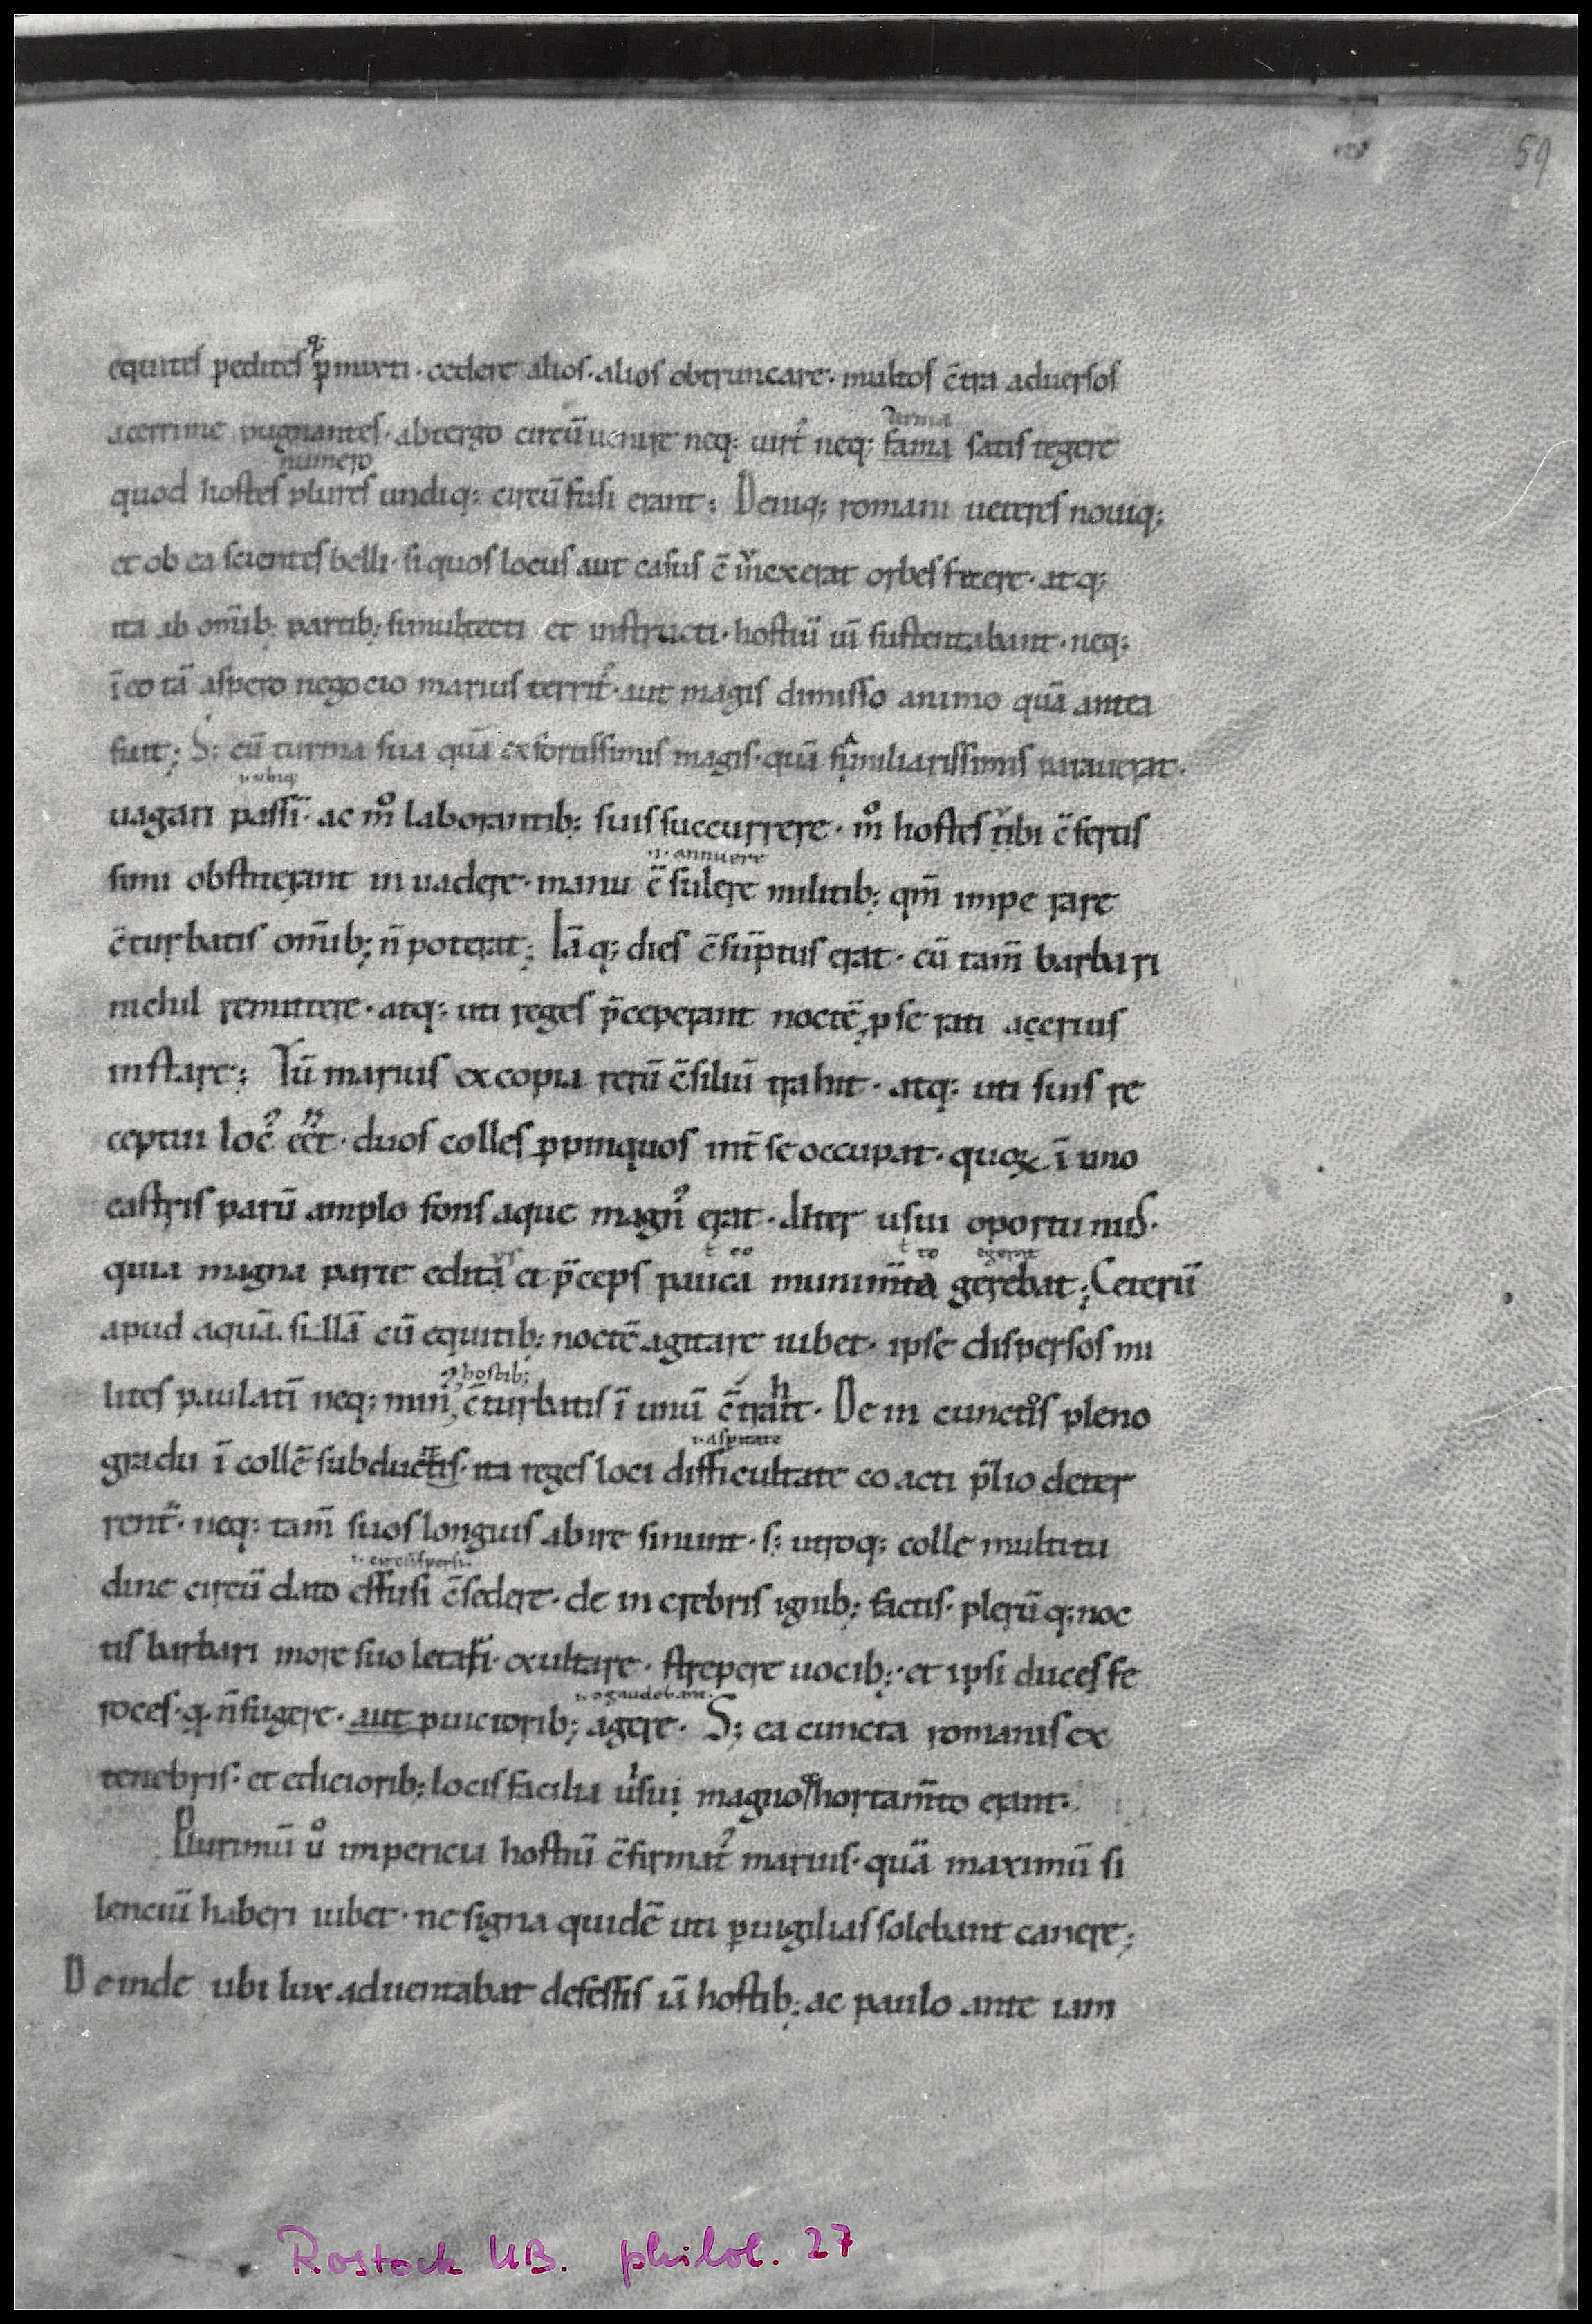 59
equites pedites q; ꝑmixti · cedere alios · alios obtruncare · multos c̄tra aduersos
acerrime pugnantes · abtergo circū uenire neq; uirt᾿ neq; fama satis tegere
arma
numero
quod hostes plures undiq; circū fusi erant ; Deniq; romani ueteres nouiq;
et ob ea scientes belli · si quos locus aut casus c̄ iūexerat orbes facere · atq;
ita ab om̄ib; partib; simul tecti et instructi · hostiū uī sustentabant · neq;
ī eo tā aspero negocio marius territ᾿ · aut magis dimisso animo quā antea
fuit ; S; cū turma sua quā ex fortissimis magis · quā familiarissimis parauerat ·
uagari passī · ac m̊ laborantib; suis succurrere · m̊ hostes u̇bi c̄fertis
.i. annuere
simi obstiterant in uadere · manu c̄sulere militib; qm̄ impe rare
c̄turbatis om̄ib; n̄ poterat ; Iāq; dies c̄sūptus erat · cū tam̄ barbari
nichil remittere · atq; uti reges p̄ceperant noctē ꝓ se rati acerius
instare ; Tū marius ex copia rerū c̄siliū trahit · atq; uti suis re
ceptui loc᾿ eēt · duos colles ꝓpinquos int̄ se occupat · quoꝝ ī uno
castris parū amplo fons aque magn᾿ erat · Alter usui oportunus ·
ł eo ł to egerat
quia magna parte edita et p̄ceps pauca munim̄ta gerebat ; Ceterū
apud aquā sillā cū equitib; noctē agitare iubet · ipse dispersos mi
hostib;
lites paulatī neq; min᾿ c̄turbatis ī unū c̄trahit · De in cunctos pleno
.i. asperitate
gradu ī collē subductis · ita reges loci difficultate co acti p̄lio deter
rent᾿ · neq; tam̄ suos longius abire sinunt · s; utroq; colle multitu
dine circū dato effusi c̄sedere · de in crebris ignib; factis · plerūq; noc
tis barbari more suo letari · exultare · strepere uocib; · et ipsi duces fe
roces · q̨ n̄ fugere · aut p uictorib; agere · S; ea cuncta romanis ex
tenebris · et ediciorib; locis facilia uisui magnoq; hortam̄to erant ·
Plurimū u̇ impericia hostiū c̄firmat᾿ marius · quā maximū si
lenciū haberi iubet · ne signa quidē uti ꝑ uigilias solebant canere ;
Deinde ubi lux aduentabat defessis iā hostib; ac paulo ante iam
Rostock UB. philol. 27